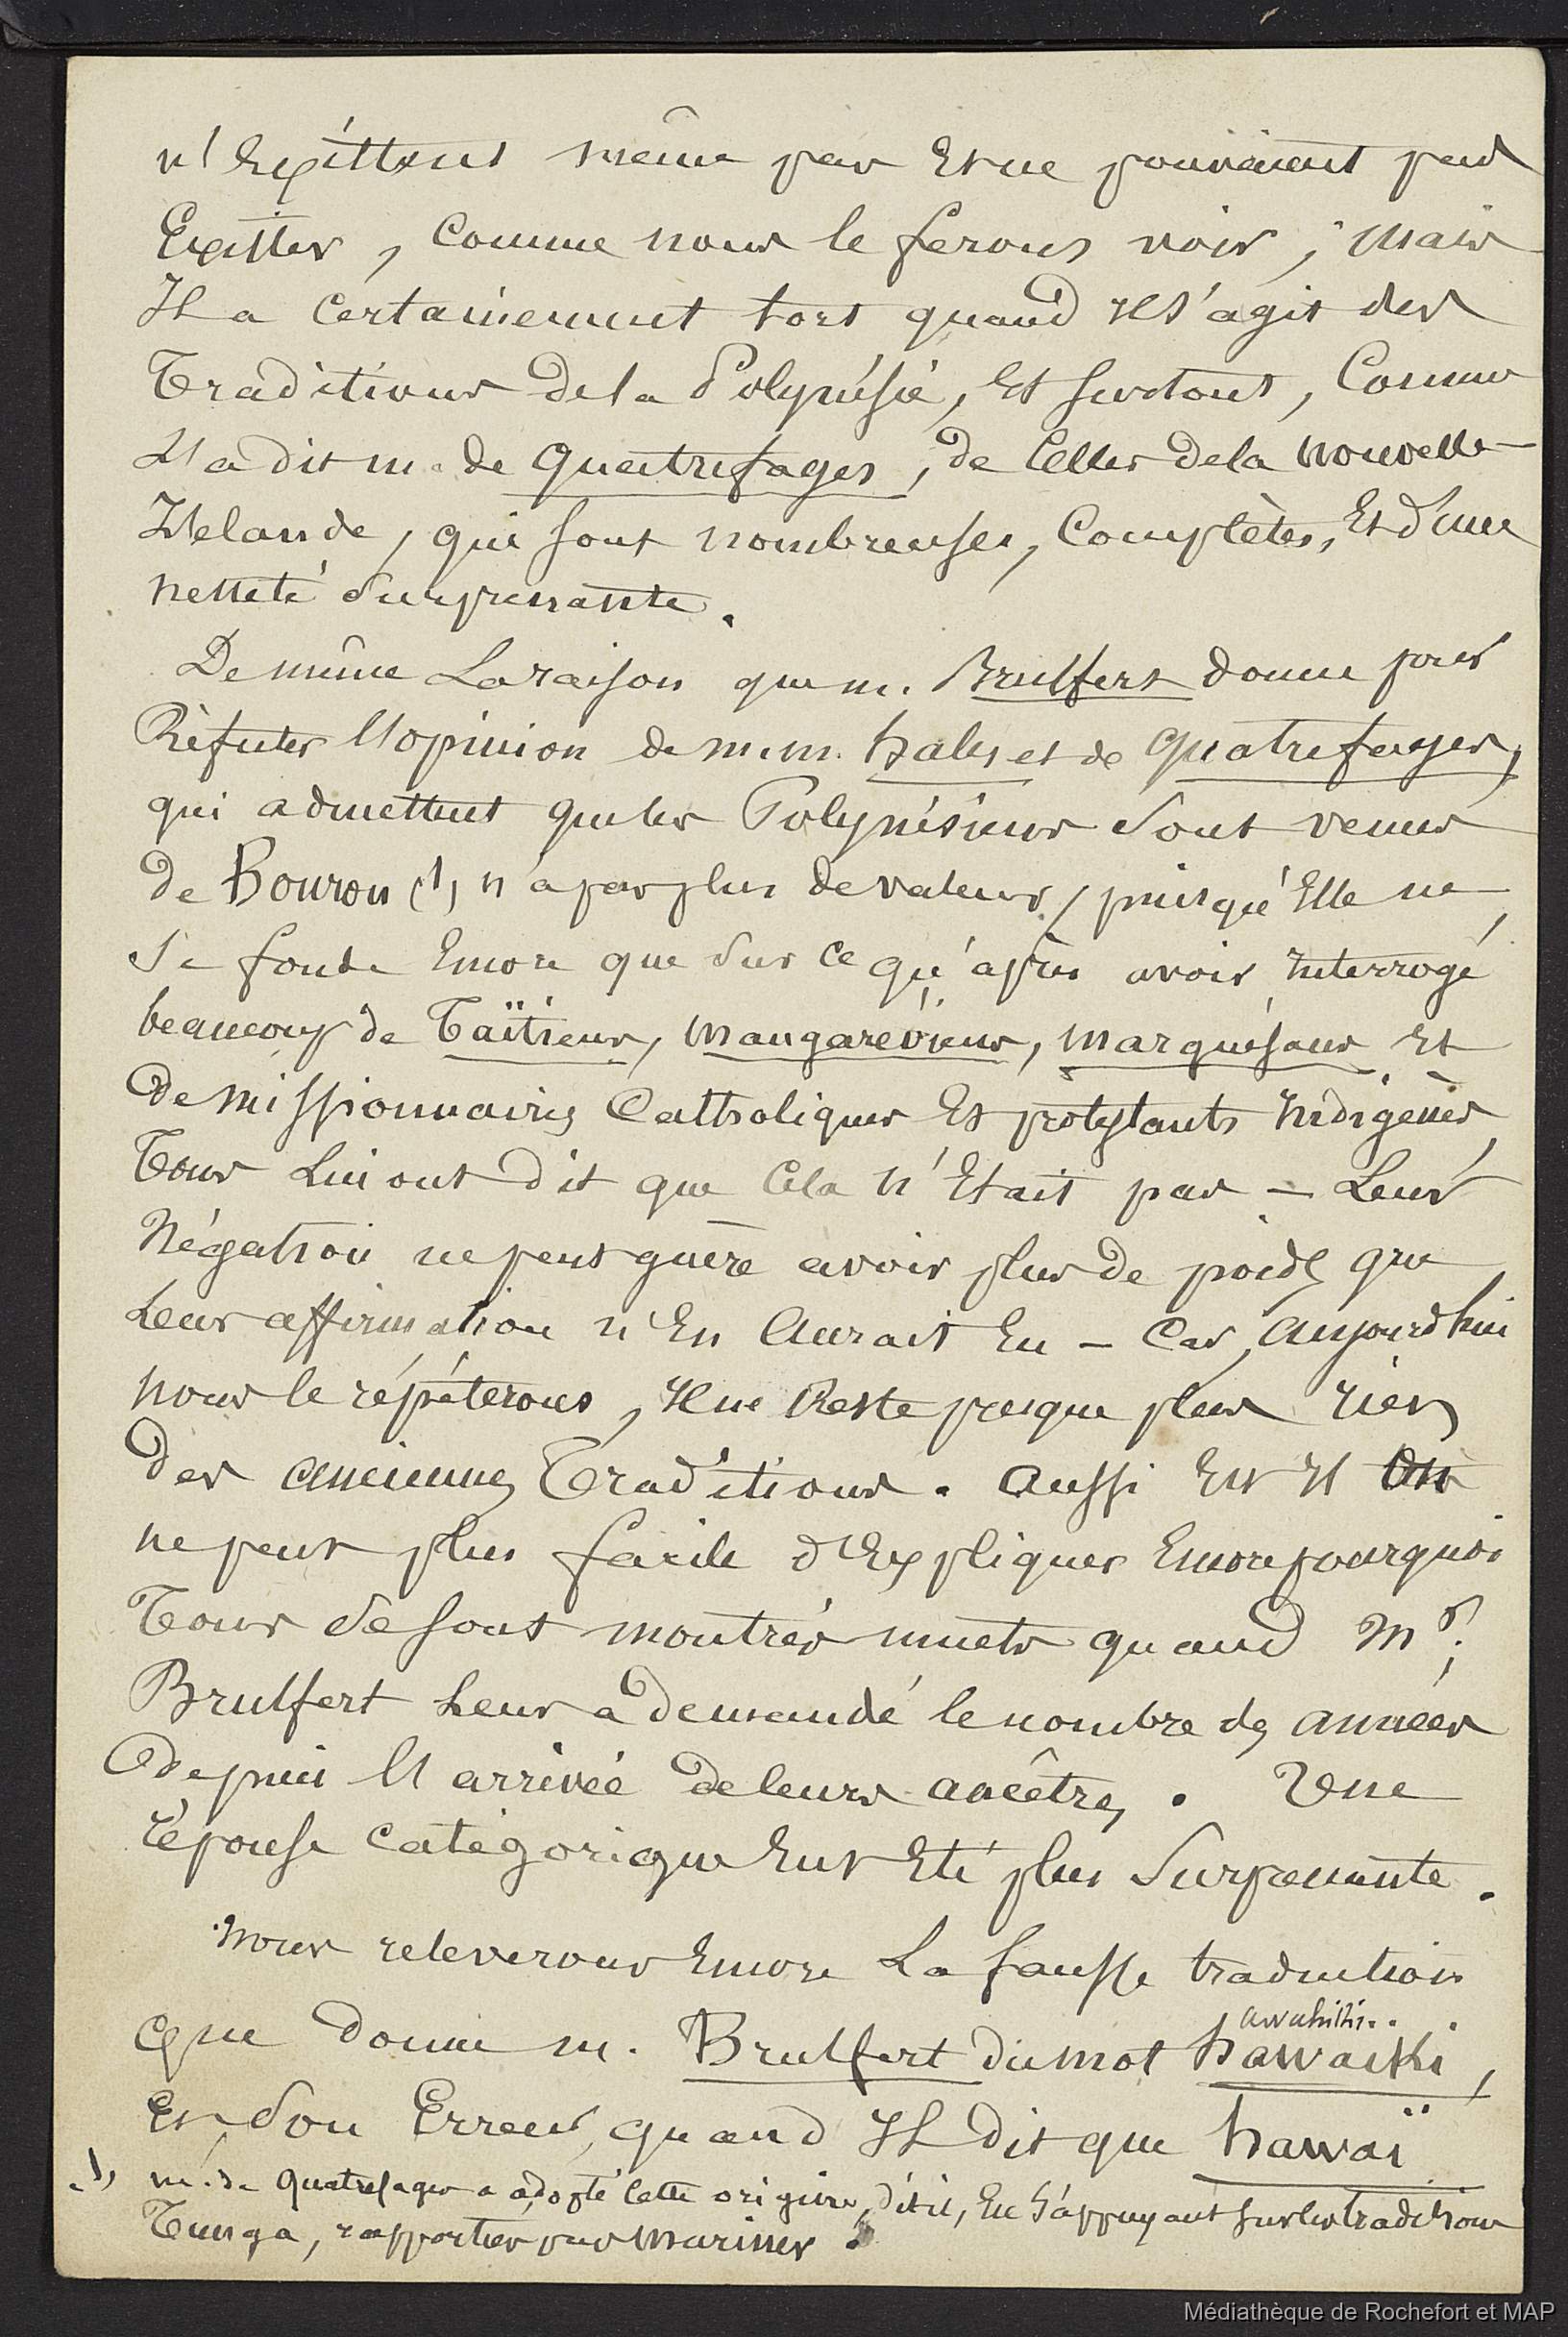 n'Existent même pas Et ne pouvaient pas
Exister, Comme nous le ferons voir ; mais
Il a Certainement tort quand il s'agit des
Traditions de la Polynésie, Et surtout, Comme
l'a dit m. de Quatrefages, de Celles de la Nouvelle-
Zélande, qui sont nombreuses, Complètes, Et d'une
netteté surprenante.
De même La raison que m. Brulfert donne pour
Réfuter l'opinion de m.m. hales et de Quatrefages,
qui admettent que les Polynésiens sont venus
de Bouron (1) n'a pas plus de valeur, puisqu'Elle ne
se fonde Encore que sur ce qu'après avoir interrogé
beaucoup de Taïtiens, Mangaréviens, Marquésans Et
de missionnaires Catholiques Et protestants indigènes,
Tous Lui ont dit que Cela n'Etait pas – Leur
Négation ne peut guère avoir plus de poids que
Leur affirmation n'En Aurait Eu – Car, Aujourd'hui
nous le répéterons, Il ne Reste presque plus rien
des anciennes Traditions. Aussi Est il on
ne peut plus facile d'Expliquer Encore pourquoi
Tous se sont montrés muets quand Mr.
Brulfert Leur a demandé le nombre des années
depuis l'arrivée de leurs ancêtres. Une
réponse catégorique Eut Eté plus surprenante.
Nous releverons Encore La fausse traduction
que donne m. Brulfert du mot hawaiki,
Et son Erreur, quand Il dit que hawaï
(1) m. de Quatrefages a adopté Cette origine, dit il, En s'appuyant sur les traditions
Tunga, rapportées par Mariner.
Médiathèque de Rochefort et MAP